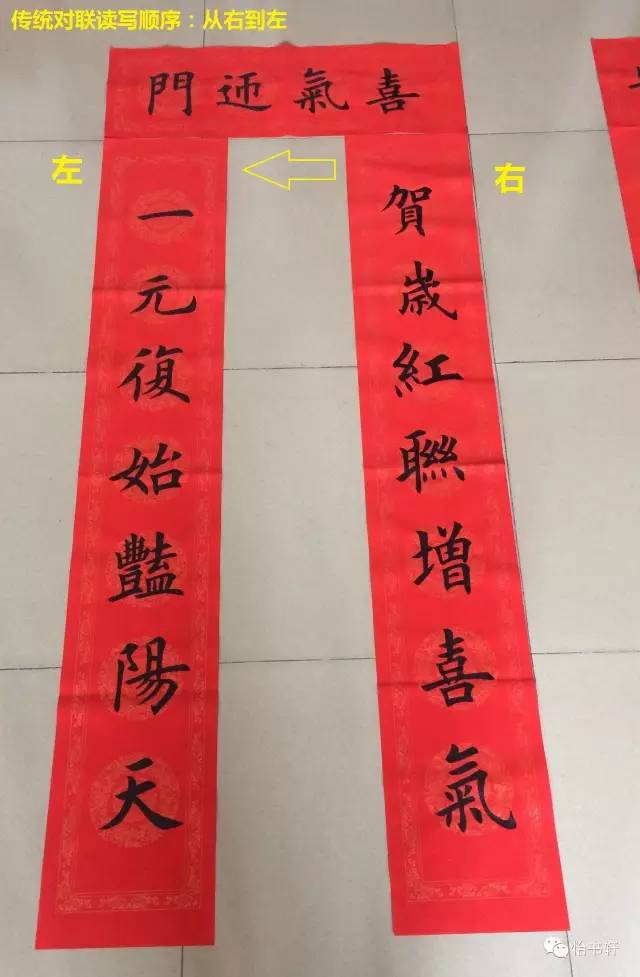 传统对联读写顺序：从右到左
喜氣迎門
右
左
賀歲紅聯增喜氣
一元復始豔陽天
怡书轩